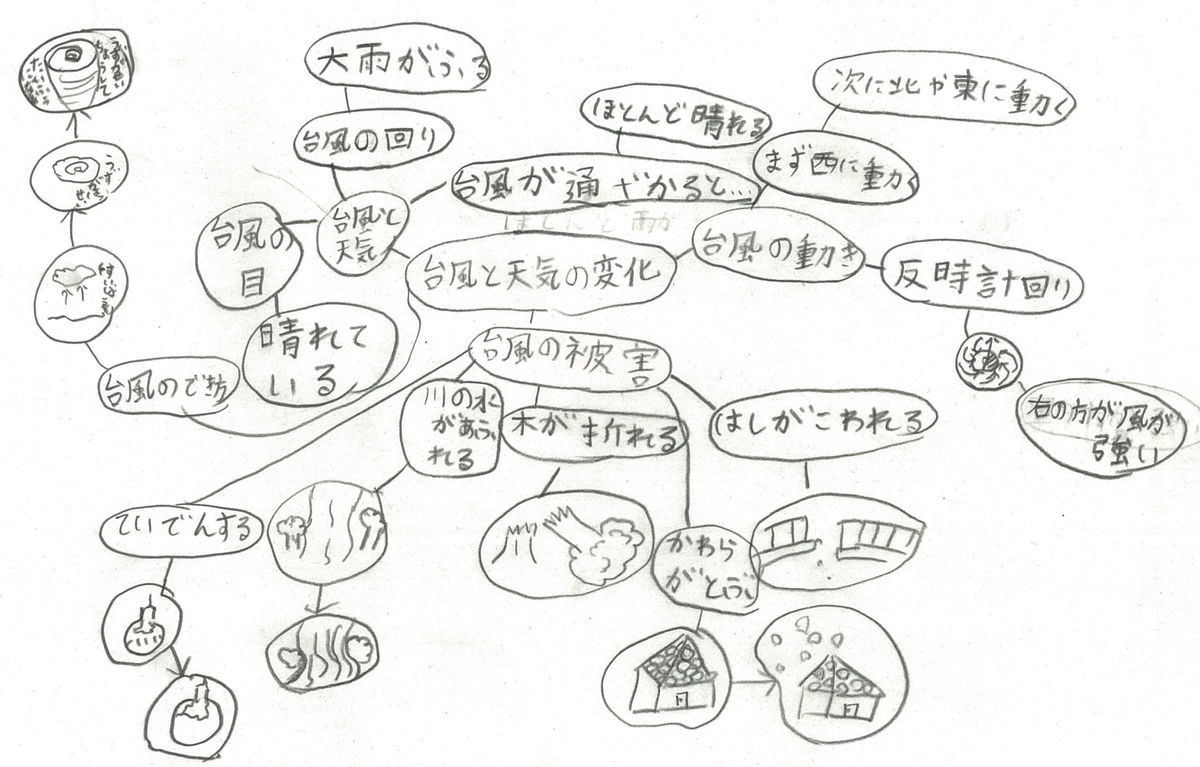 大雨がふる
台風の回り
台風と
天気
台風の
目
晴れて
いる
台風が通ざかると…
ほとんど晴れる
台風と天気の変化
台風の動き
まず西に動く
次に北や東に動く
反時計回り
右の方が風が
強い
台風のでき方
台風の被害
川の水
があふ
れる
木が折れる
はしがこわれる
ていでんする
かわら
がとぶ